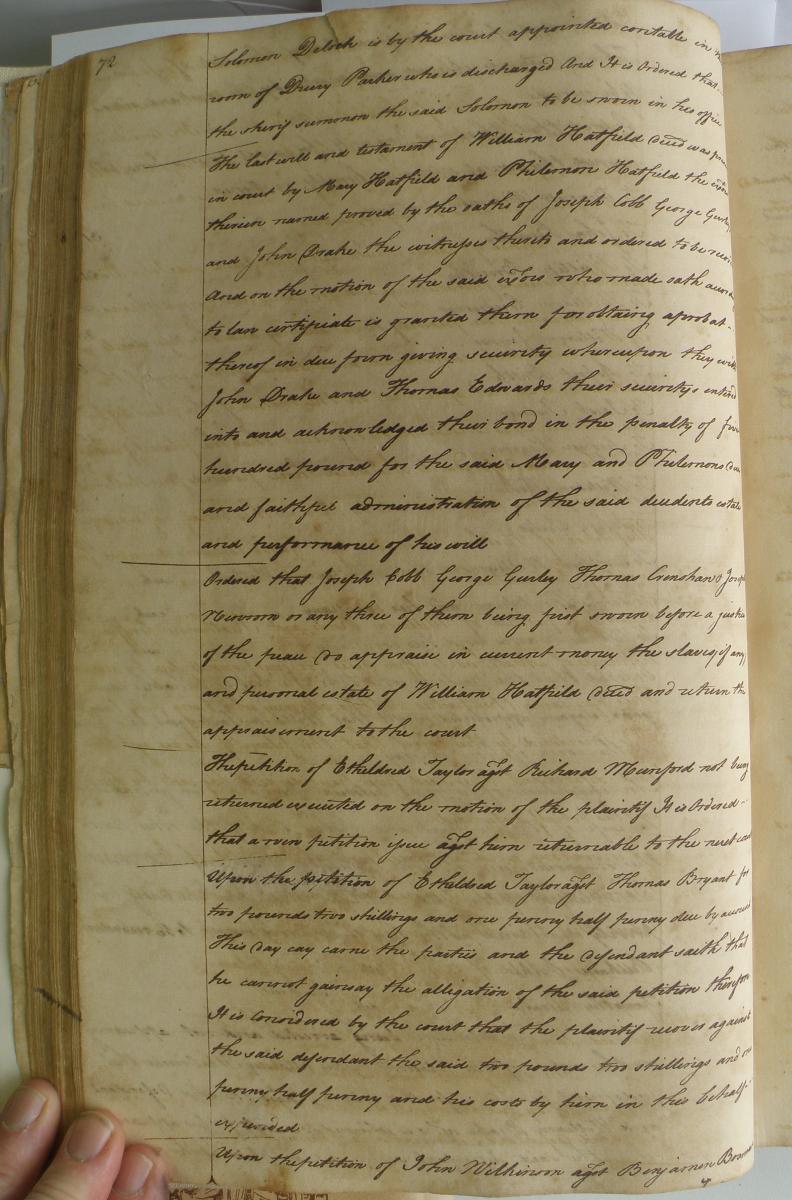 72
Solomon Deloch is by the court appointed constable in
room of Drury Parker who is discharged And It is Ordered that
the sherif summon the said Solomon to be sworn in his office
The last will and testament of William Hatfield deced was
in court by Mary Hatfield and Philemon Hatfield the
therein named proved by the oaths of Joseph Cobb George Gurley
and John Drake the witnesses thereto and ordered to be
And on the motion of the said exors who made oath
to law certificate is granted them for obtaing a probat
thereof in due form giving security whereupon they with
John Drake and Thomas Edwards their securitys
into and acknowledged their bond in the penalty of
hundred pound for the said Mary and Philemons due
and faithful administration of the said decedents estate
and performance of his will
Ordered that Joseph Cobb George Gurley Thomas Crenshaw & Joseph
Newsom or any three of them being first sworn before a justice
of the peace do appraise in current money the slaves if any
and personal estate of William Hatfield deced and return the
appraisement to the court
The petition of Etheldred Taylor agst Richard Mumford not being
returned executed on the motion of the plaintif It is Ordered
that a new petition issue agst him returnable to the next court
Upon the petition of Etheldred Taylor agst Thomas Bryant for
two pounds two shillings and one penny half penny due by account
This day cay came the parties and the defendant saith that
he cannot gainsay the alligation of the said petition therefore
It is Considered by the court that the plaintif recover against
the said defendant the said two pounds two shillings and one
penny half penny and his costs by him in this behalf
expended
Upon the petition of John Wilkinson agst Benjamen